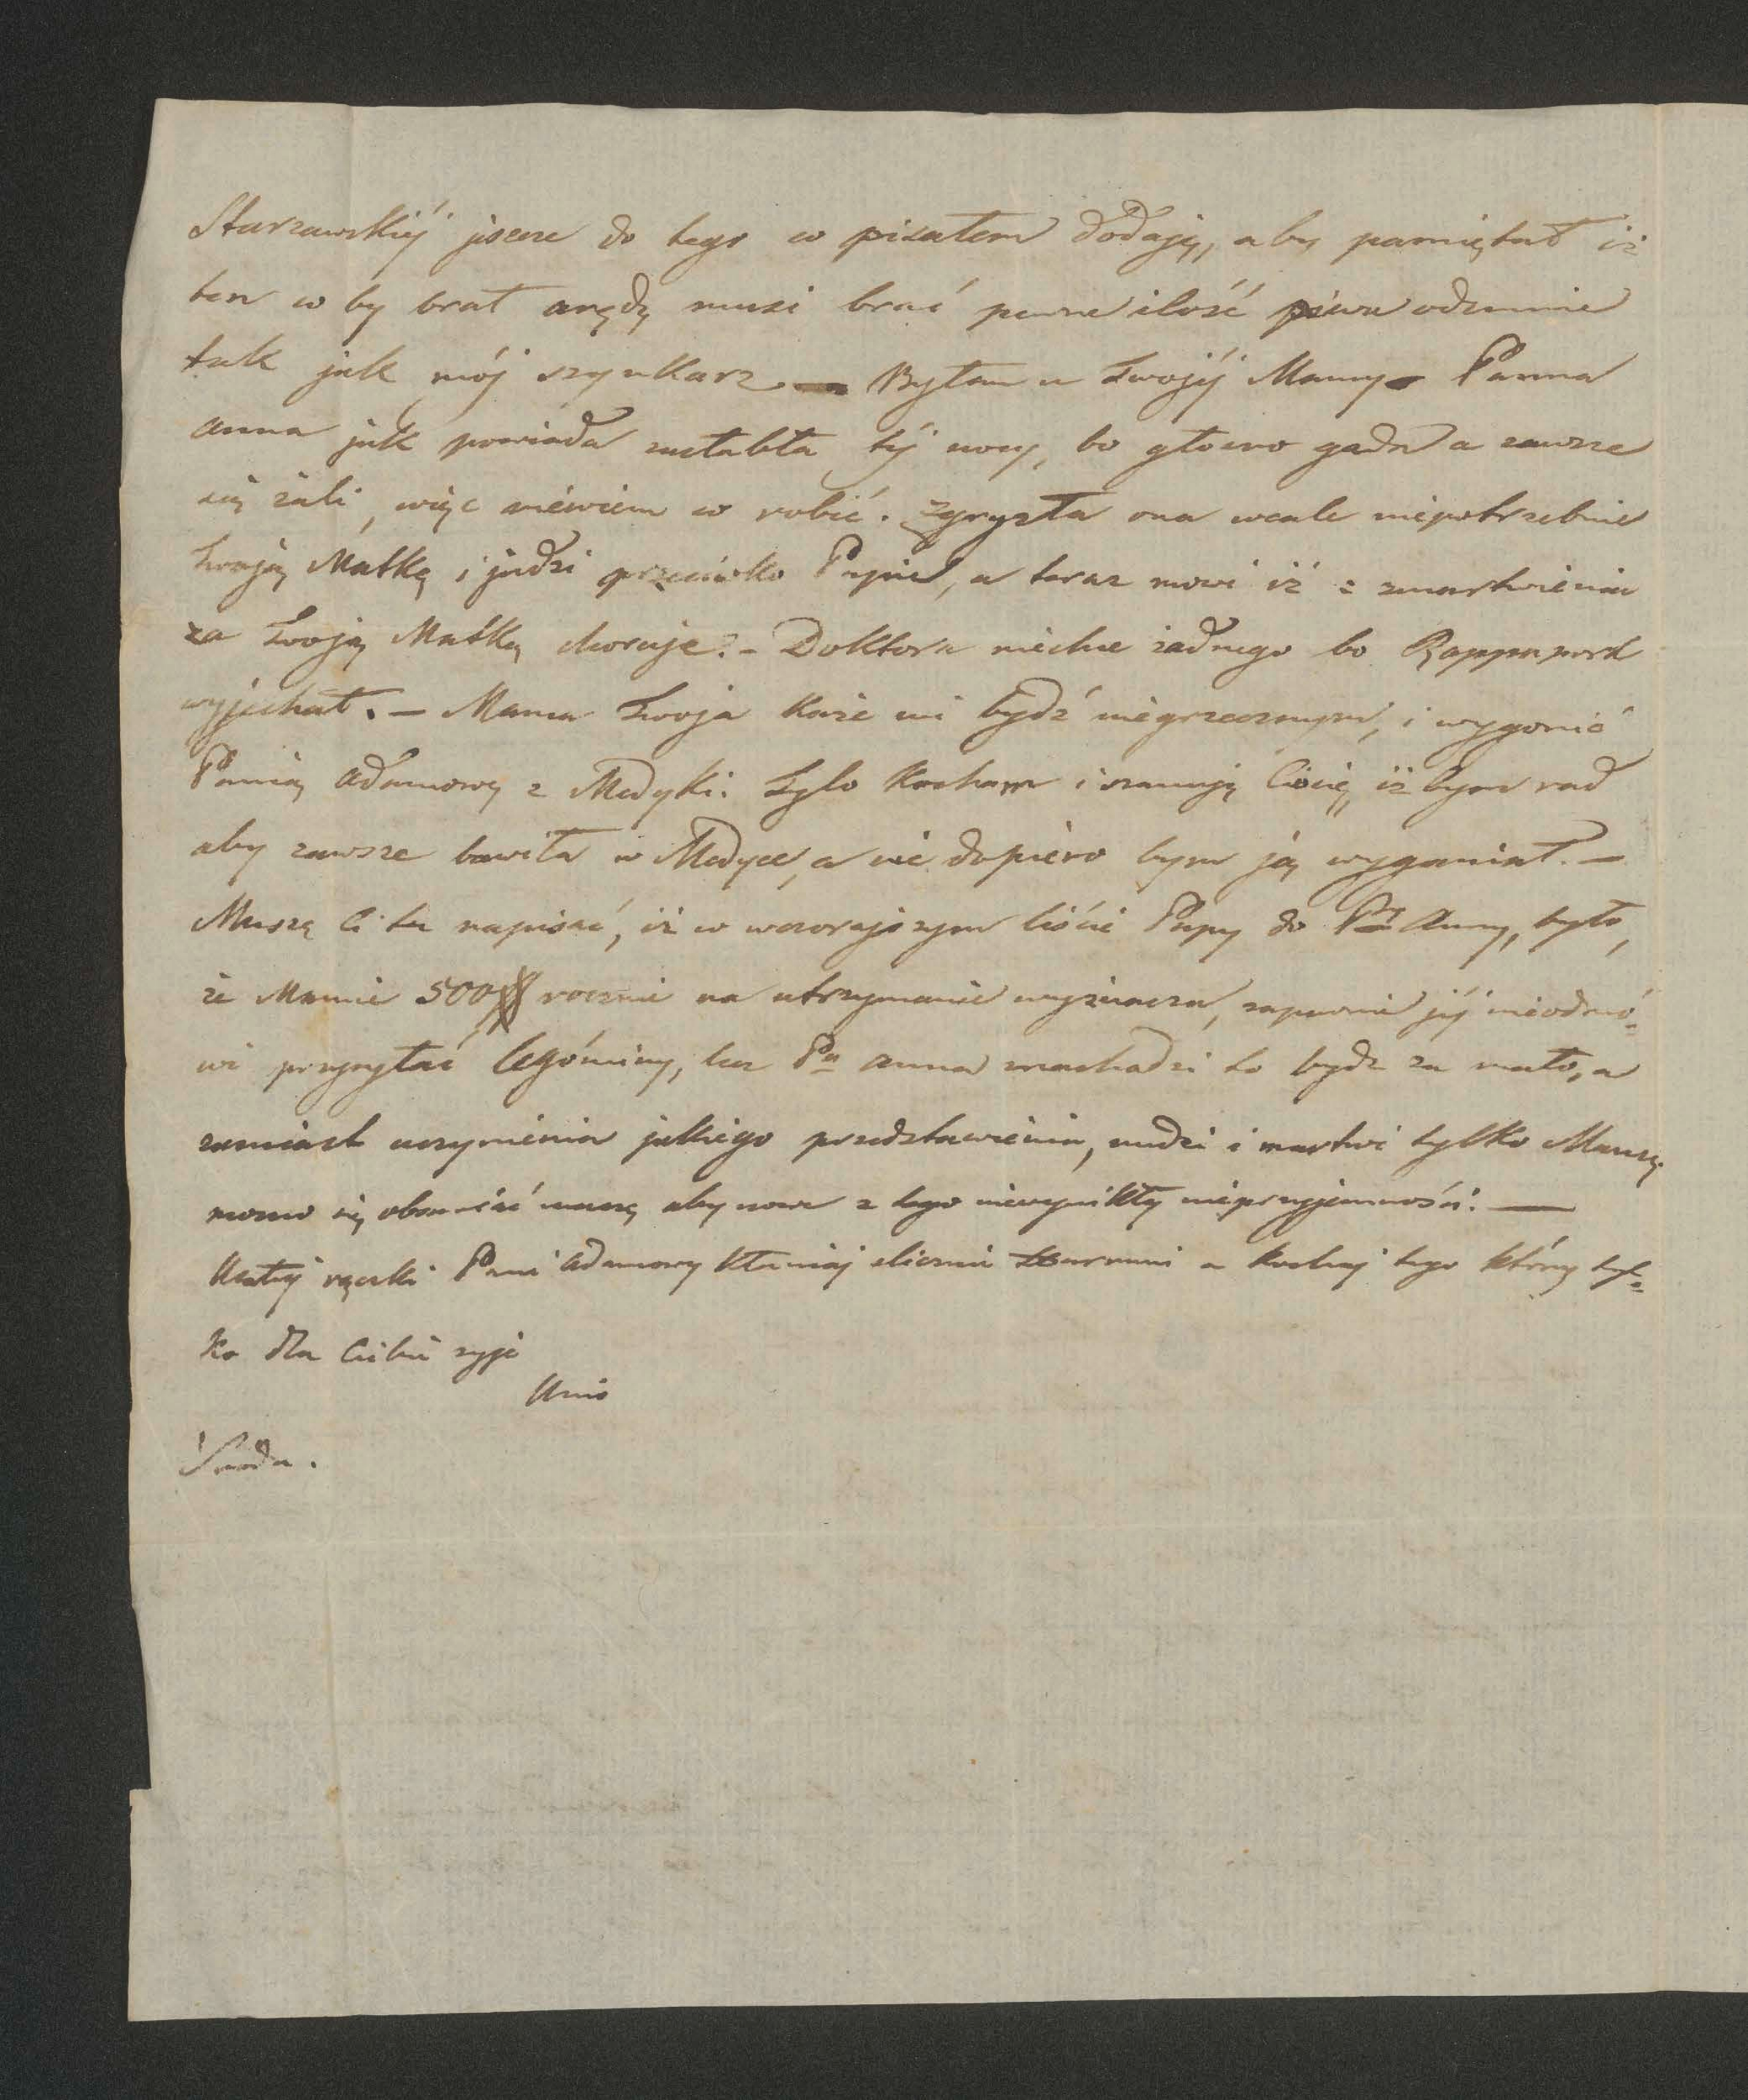 Starzawskiéj jescze do tego co pisałem dodaję, aby pamiętał iż
ten co by brał arędę musi brać pewne ilość piwa odemnie
tak jak mój szynkarz — Byłam u Twojéj Mamy — Panna
Anna jak powiada zasłabła téj nocy, bo głosno gada a zawsze
się żali, więc niewiem co robić. Zgryzła ona wcale niepotrzebnie
Twoją Matkę i judzi przeciwko Papie, a teraz mowi iż z zmartwienia
za Twoją Matką choruje. – Doktora niechce żadnego bo Rappaport
wyjechał. – Mama Twoja każe mi bydź niegrzecznym, i wygonić
Panią Adamową z Medyki. Tylo kocham i szanuję Ciocię, iż bym rad
aby zawsze bawiła w Medyce, a nie dopiéro bym ją wyganiał. —
Muszę Ci tu napisać, iż w wczorajszym liście Papy do Py Anny, było,
że Mamie 500 rocznie na utrzymanie wyznacza, zapewne jéj nieodmó=
wi przysyłać legóminy, lecz Pa Anna znachodzi to bydz za mało, a
zamiast uczynienia jakiego przedstawienia, nudzi i martwi tylko Mamę
mocno się obawiać muszę aby nowe z tego niewynikły nieprzyjemności. —
Ucałuj rączki Pani Adamowy kłaniaj slicznie a kochaj tego który tyl=
ko dla Ciebie zyje
Unio
Sroda.